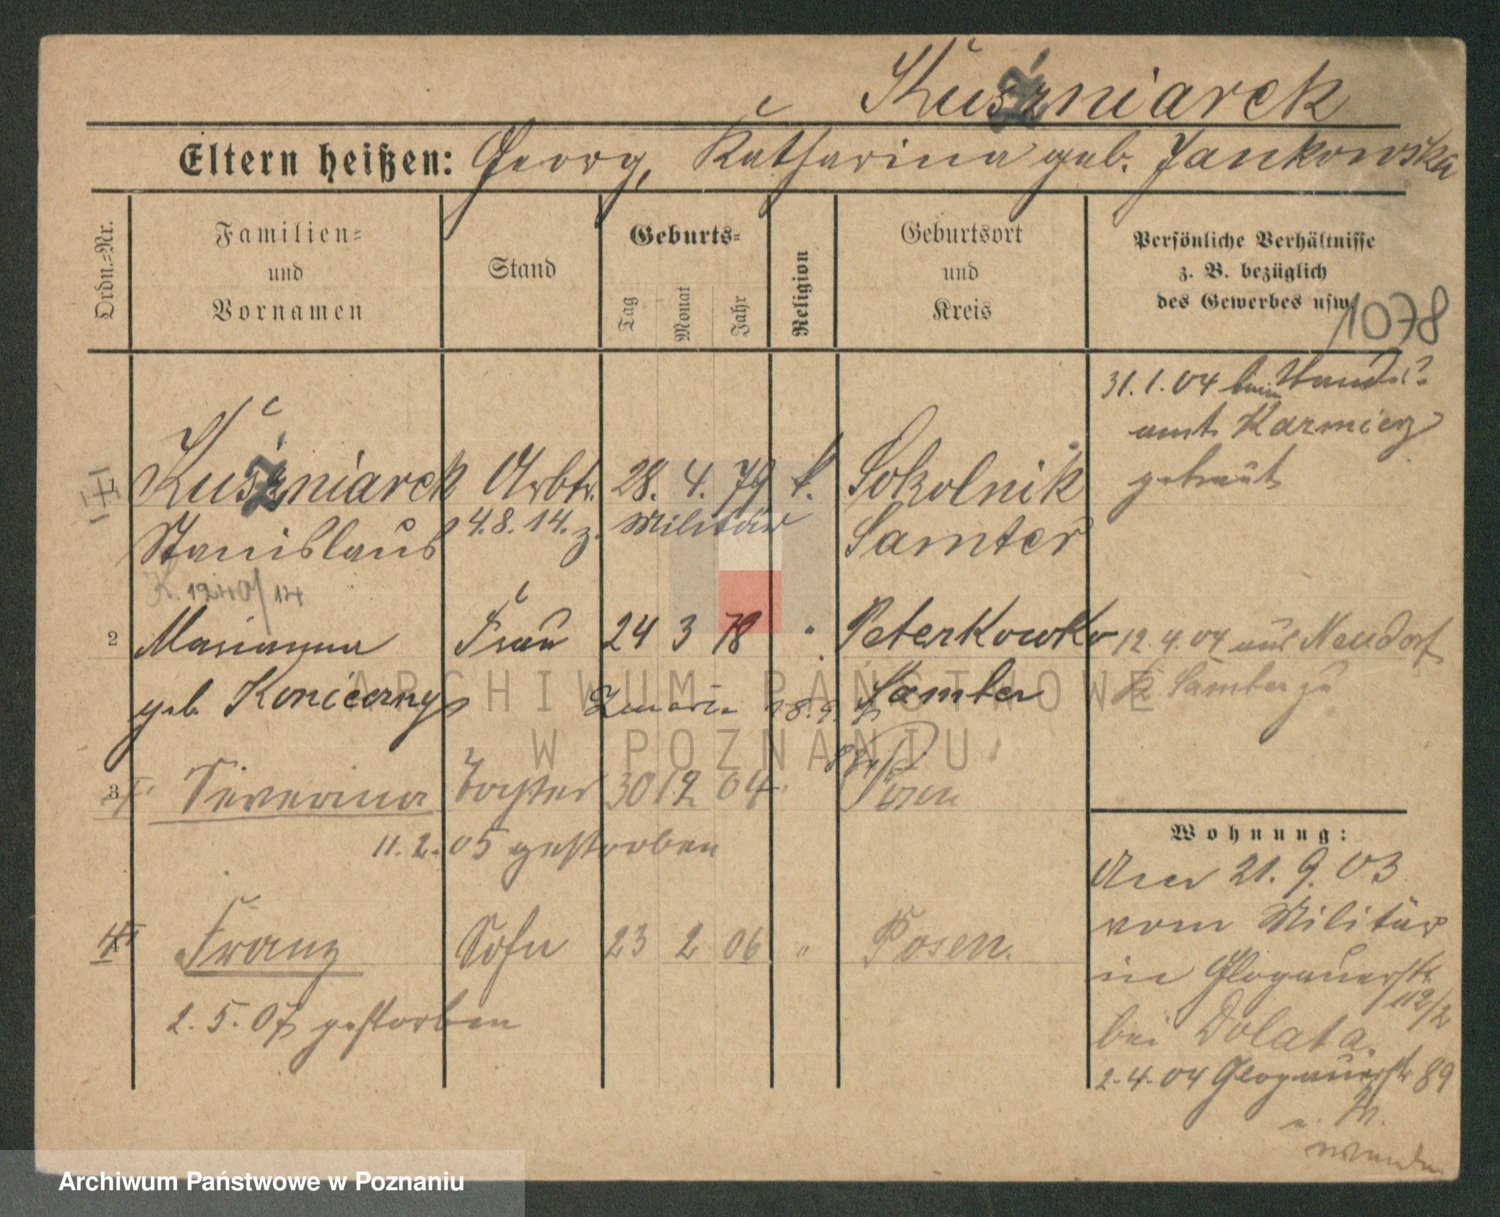 Kuśzniarek
Eltern heißen: Georg, Katharina geb. Jankowska
Ordn.=Nr.
Familien=
und
Vornamen
Stand
Geburts=
Tag
Monat
Jahr
Religion
Geburtsort
und
Kreis
Persönliche Verhältnisse
z. B. bezüglich
des Gewerbes usw.
1078
31.1.04 beim Standes
amt Kazmierz
getraut
1 Kuśzniarek Arbtr. 28. 4. 79 k. Sokolnik
Stanislaus 4.8.14. z. Militär Samter
K. 1240/14
2 Marianna Frau 24 3 78 " Peterkowko 12.4.04 aus Neudorf
geb. Koniecznys Samter K Samter zu
3 Severina Tochter 30 12 04 " Posen
11.2.05 gestorben
4 Franz Sohn 23 2 06 " Posen.
2.5.07 gestorben
Wohnung:
21.9.03
vom Militär
in Glogauerstr
112/2
bei Dolata.
2.4.04 Glogauerstr 89
wenden
ARCHIWUM PAŃSTWOWE
W POZNANIU
Archiwum Państwowe w Poznaniu